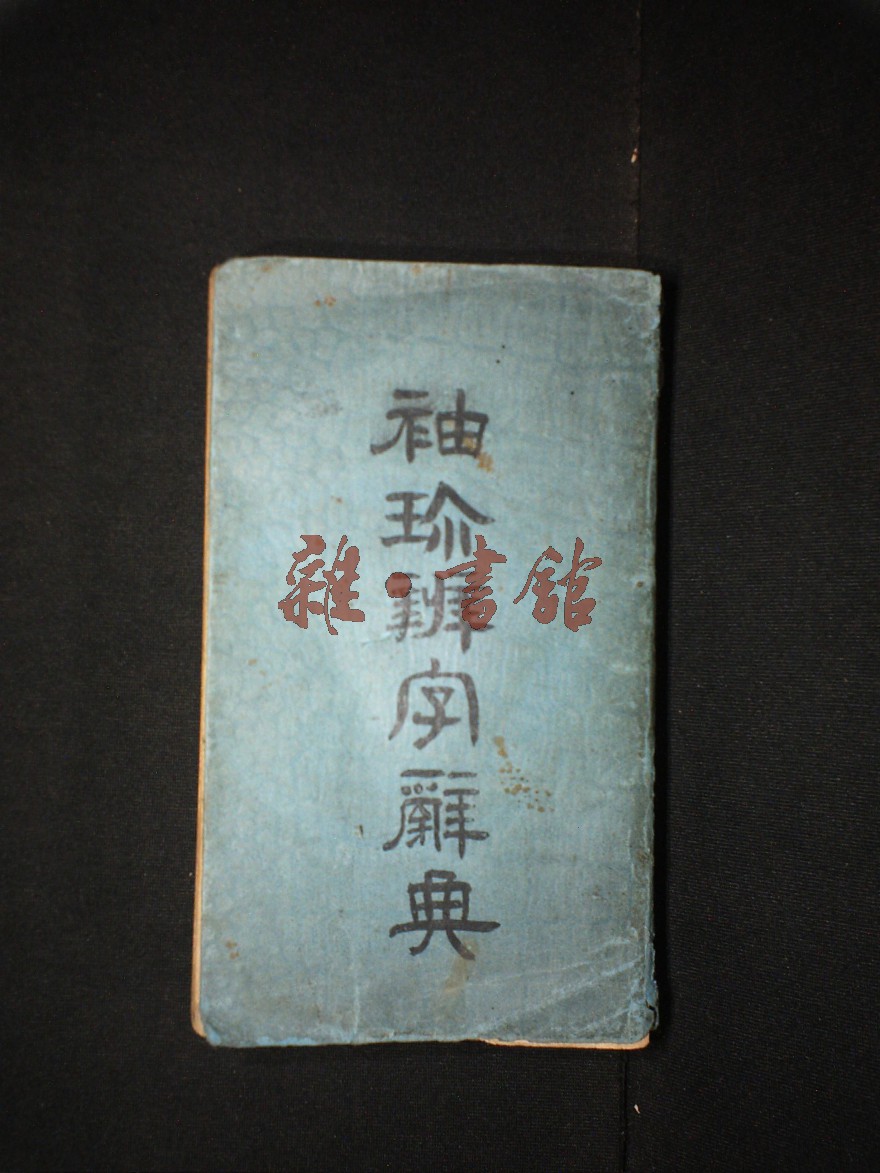 袖珍辨字辭典
雜·書館